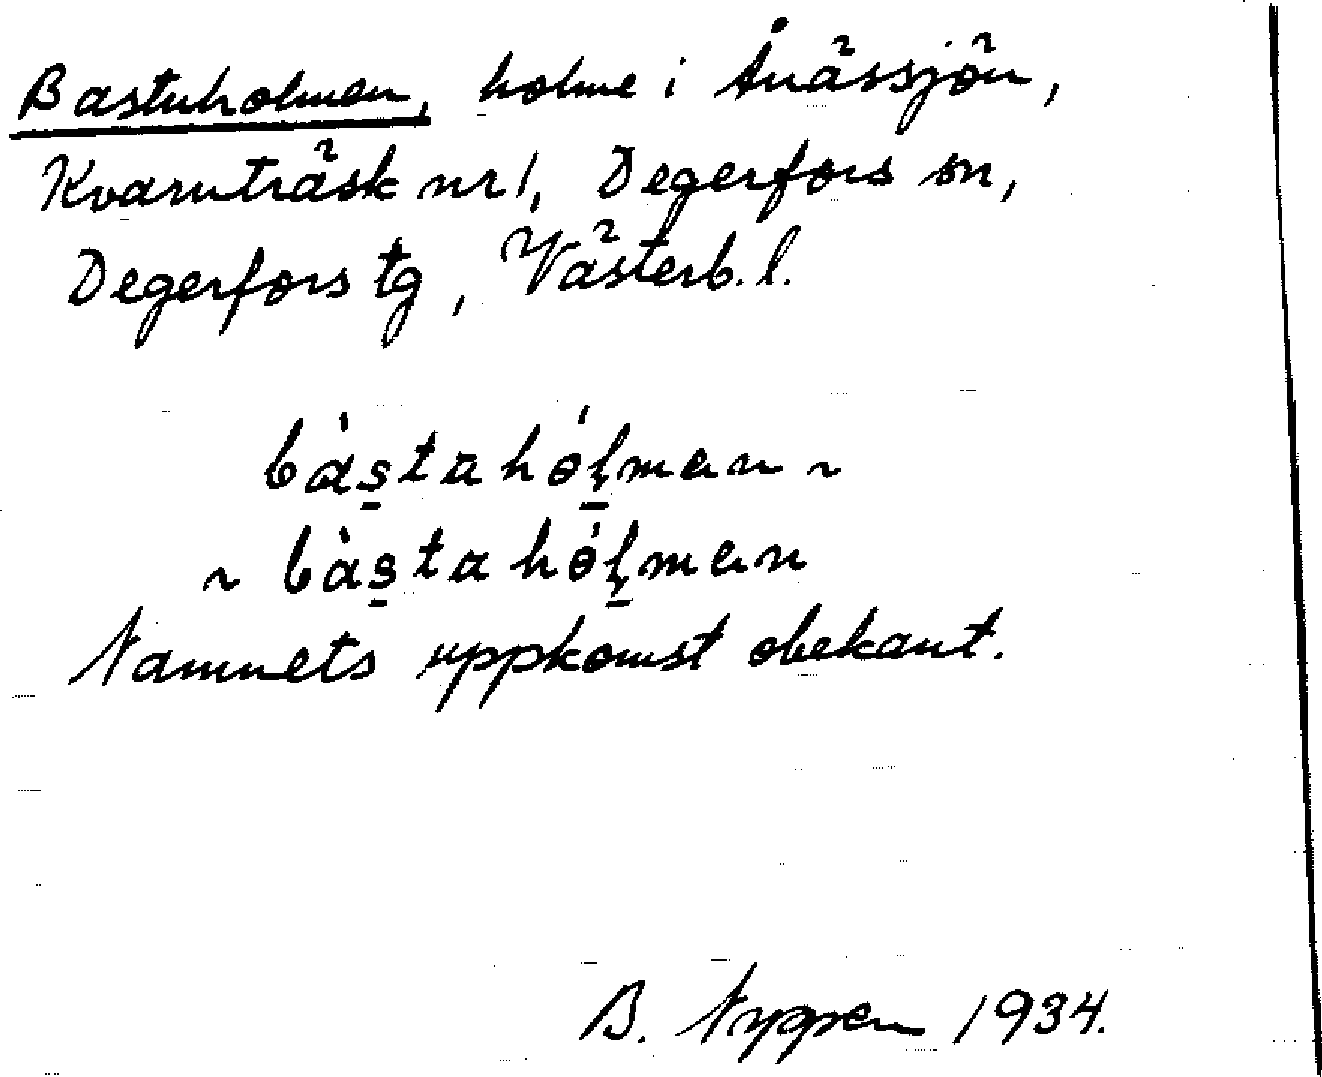 Bastuholmen, holme i Ånässjön,
Kvarnträsk nr 1, Degerfors sn,
Degerfors tg, Västerb. l.
bàs̱tahóḻmen ~
~ bàs̱tahóḻmen
Namnets uppkomst obekant.
B. Nyppen 1934.